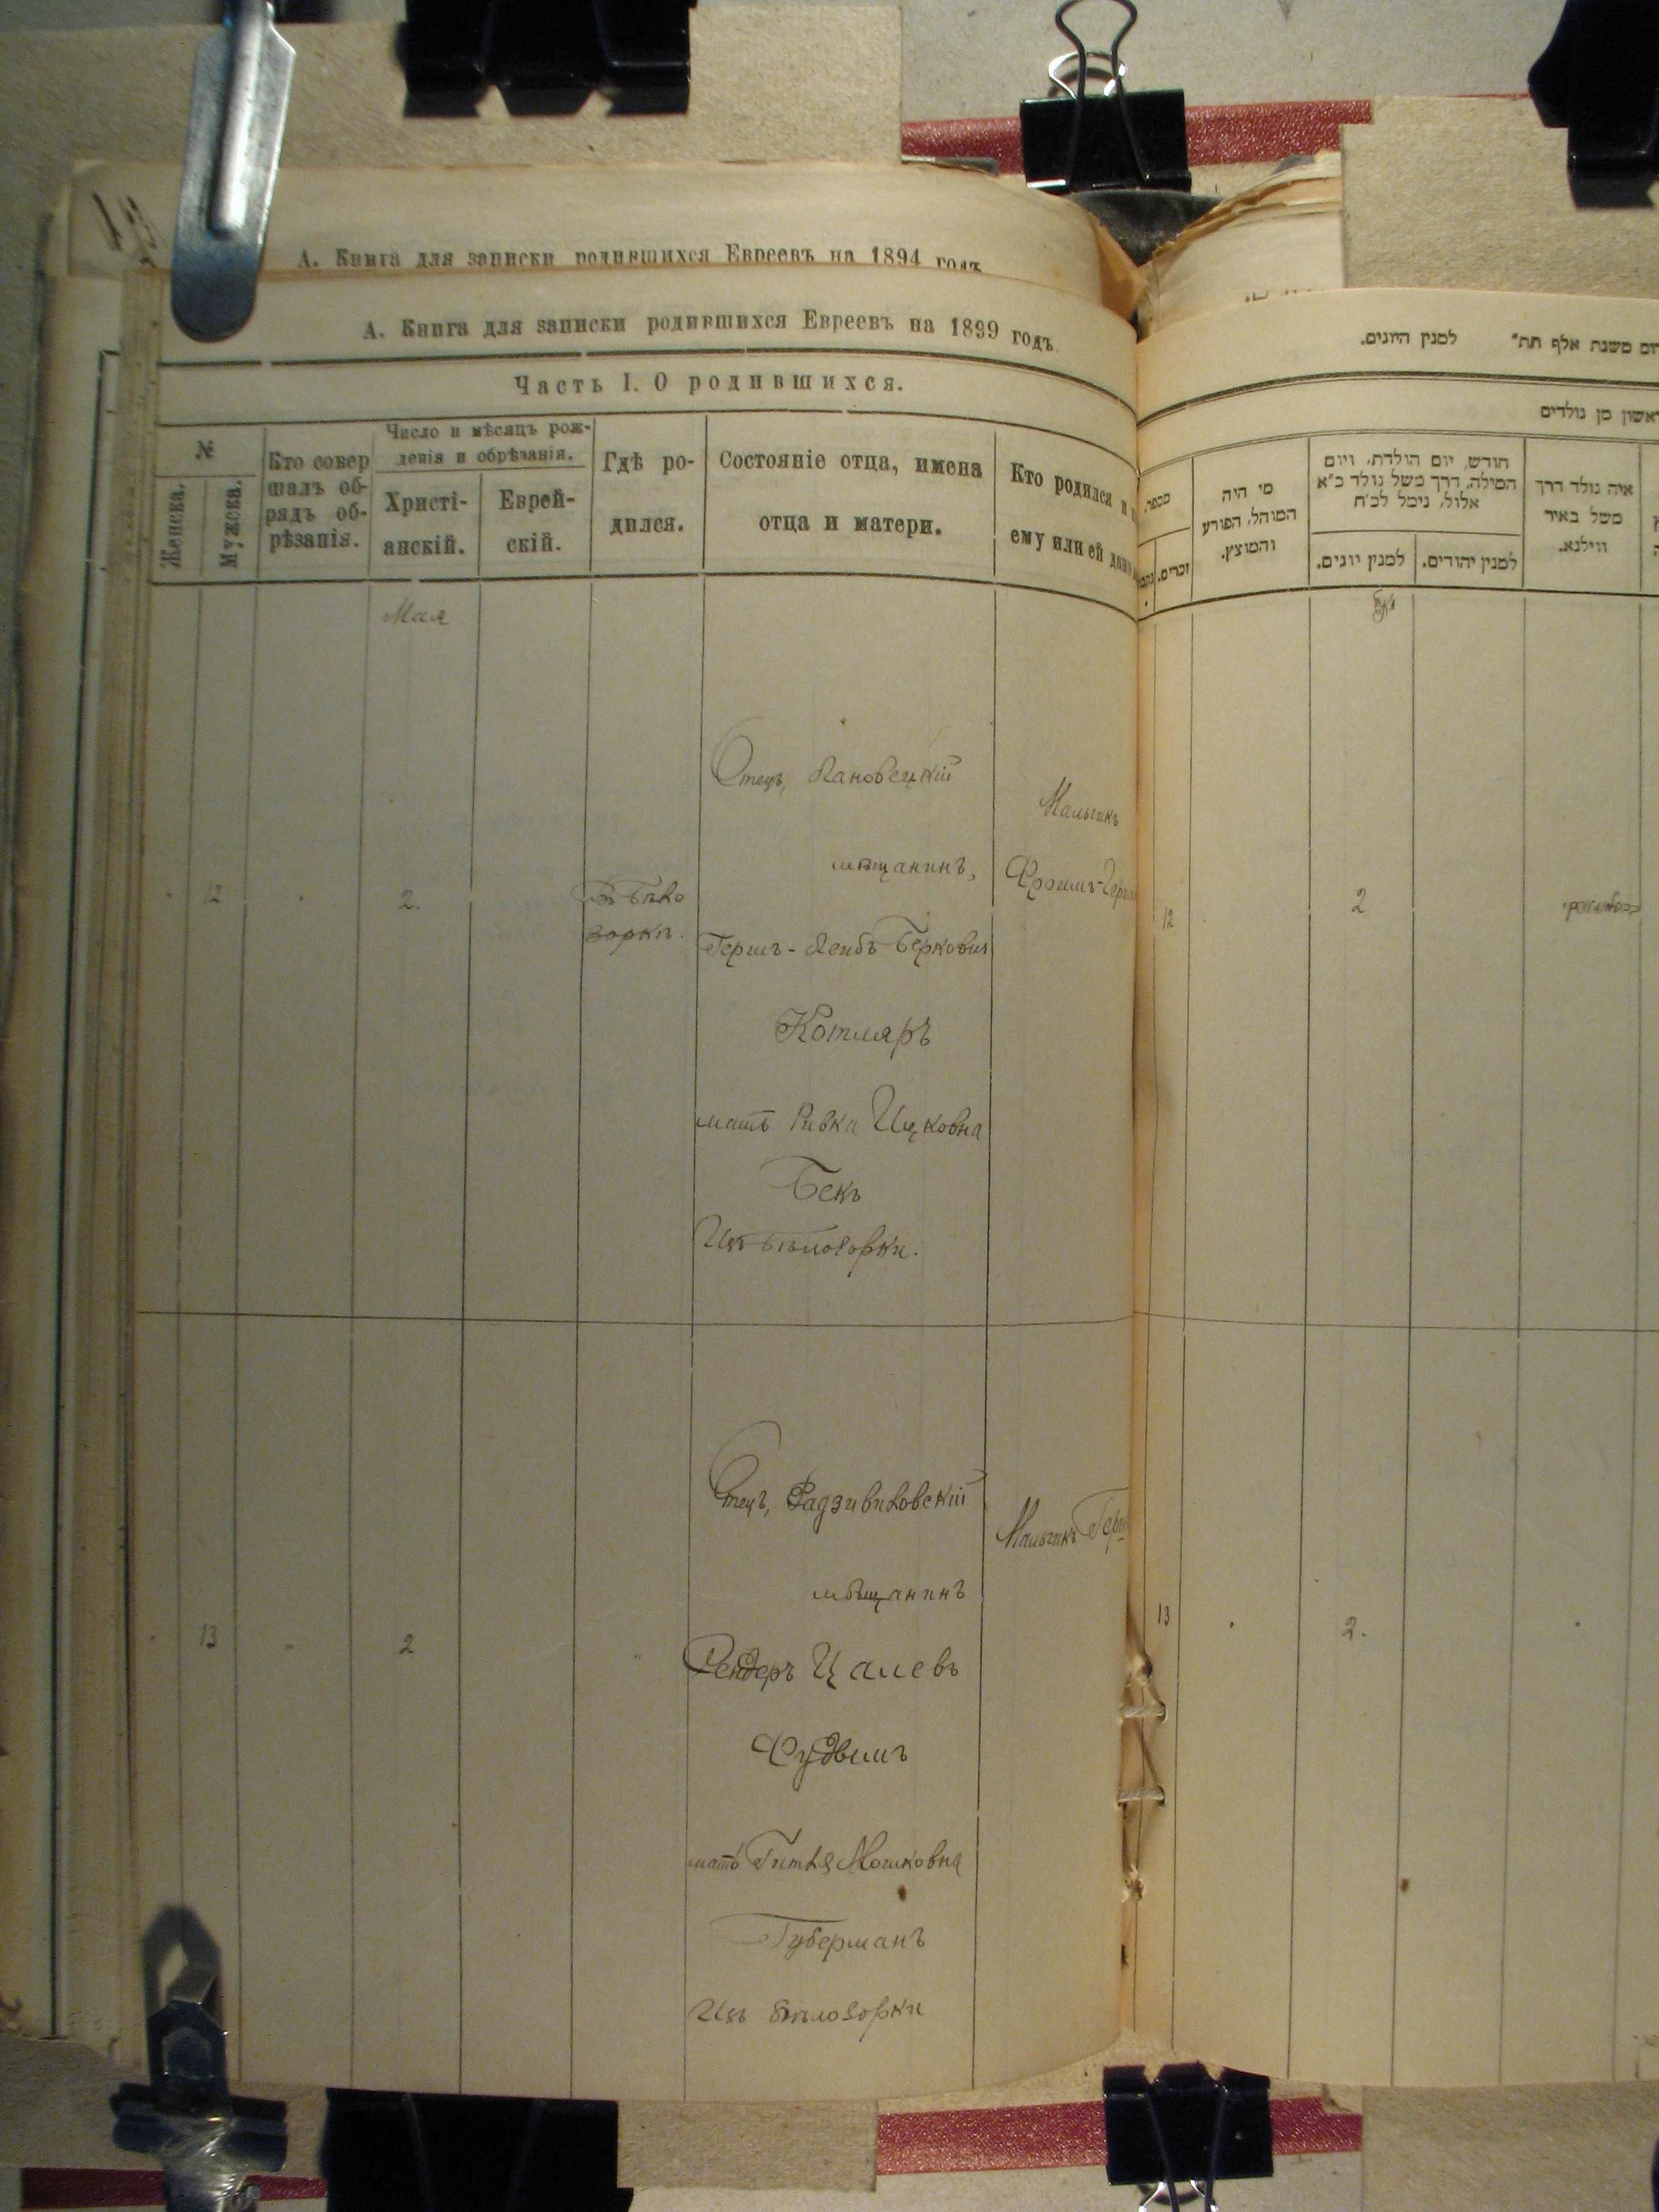 А. Книга для записки родившихся Евреевъ на 1894 годъ
А. Книга для записки родившихся Евреевъ на 1899 годъ.
Часть I. О родившихся.
№
Женска.
Мужска.
Кто совер
шалъ об-
рядъ об-
рѣзанія.
Число и мѣсяцъ рож-
денія и обрѣзанія.
Христі-
анскій.
Еврей-
скій.
Гдѣ ро-
дился.
Состояніе отца, имена
отца и матери.
Кто родился и
ему или ей дано
Мая
12
2.
Въ Бѣло
зоркѣ.
Отецъ, Лановецкій
мѣщанинъ,
Гершъ-Лейбъ Берковичъ
Котляръ
мать Ривка Ицковна
Бекъ
Изъ Бѣлозорки.
Мальчикъ
Фроимъ-
13
2
Отецъ, Радзивиловскій
мѣщанинъ
Цалевъ
Фудымъ
мать Гитля Мошковна
Губерманъ
Изъ Бѣлозорки
Мальчикъ
למנין היונים.
משנת אלף תת״
ראשון מן נולדים
מספר
זכרים.
מי היה
המוהל, הפורע
והמוצץ.
חודש, יום הולדת, ויום
המילה, דרך משל נולד כ״א
אלול, נימל לכ״ח
למנין יונים.
למנין יהודים.
איה נולד דרך
משל באיר
ווילנא.
מאי
12
2
13
2.